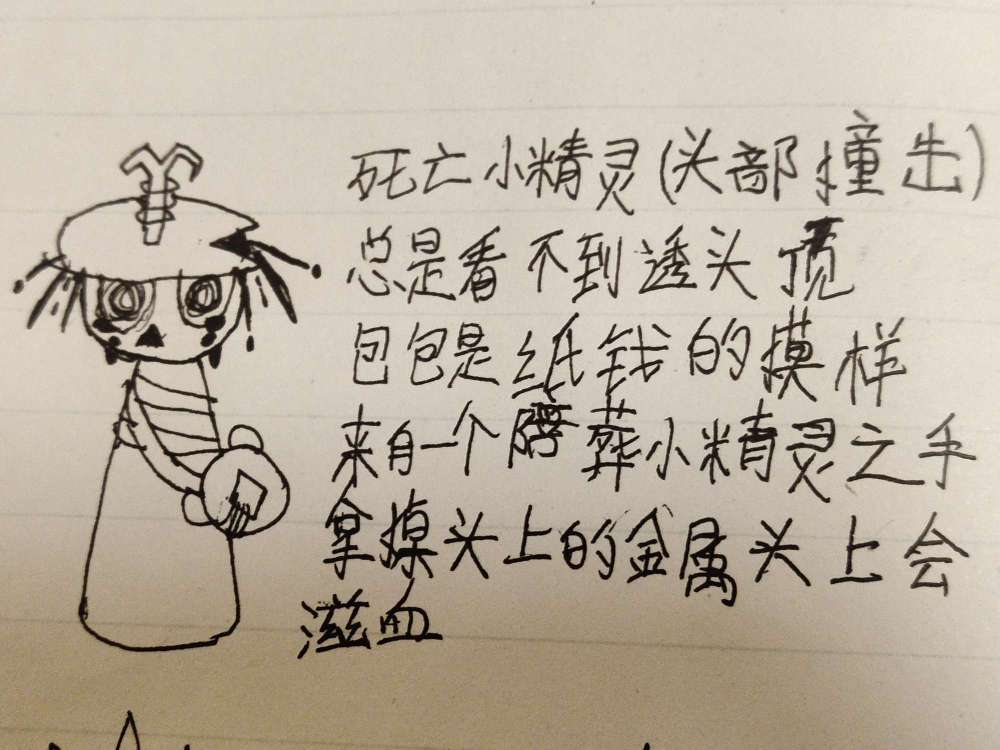 死亡小精灵(头部撞击)
总是看不到透头顶
包包是纸钱的摸样
来自一个 葬小精灵之手
拿掉头上的金属头上会
滋血